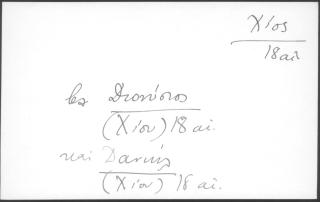 Χίος
18 αι
βλ Διονύσιος
(Χίου) 18 αι.
και Δανιήλ
(Χίου) 18 αι.